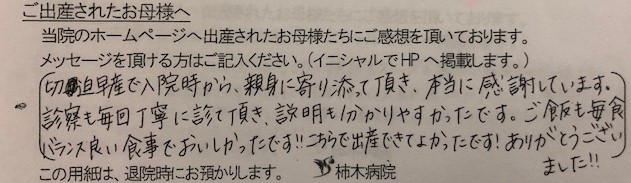 ご出産されたお母様へ
当院のホームページへ出産されたお母様たちにご感想を頂いております。
メッセージを頂ける方はご記入ください。(イニシャルでHPへ掲載します。)
切迫早産で入院時から、親身に寄り添って頂き、本当に感謝しています。
診察も毎回丁寧に診て頂き、説明も分かりやすかったです。ご飯も毎食
バランス良い食事でおいしかったです!!こちらで出産できてよかったです!ありがとうござい
ました!!
この用紙は、退院時にお預かりします。 柿木病院